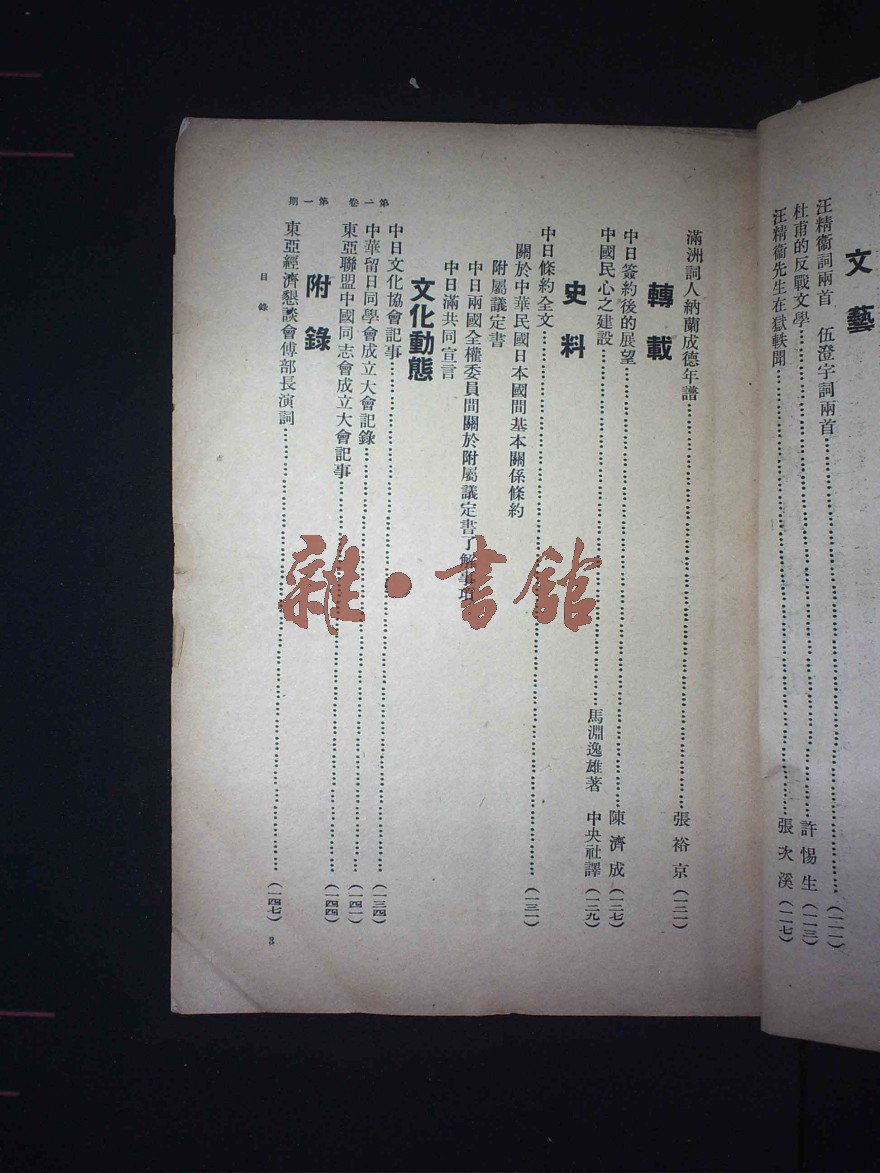 文藝
汪精衞詞兩首　伍澄宇詞兩首……(一一一)
杜甫的反戰文學……許惕生(一一三)
汪精衞先生在獄軼聞……張次溪(一一七)
滿洲詞人納蘭成德年譜……張裕京(一二一)
轉載
中日簽約後的展望……陳濟成(一二七)
中國民心之建設……馬淵逸雄著　中央社譯(一二九)
史料
中日條約全文……(一三一)
關於中華民國日本國間基本關係條約
附屬議定書
中日兩國全權委員間關於附屬議定書了解事項
中日滿共同宣言
文化動態
中日文化協會記事……(一三四)
中華留日同學會成立大會記錄……(一四一)
東亞聯盟中國同志會成立大會記事……(一四四)
附錄
東亞經濟懇談會傅部長演詞……(一四七)
第一卷　第一期
目錄
3
雜·書館